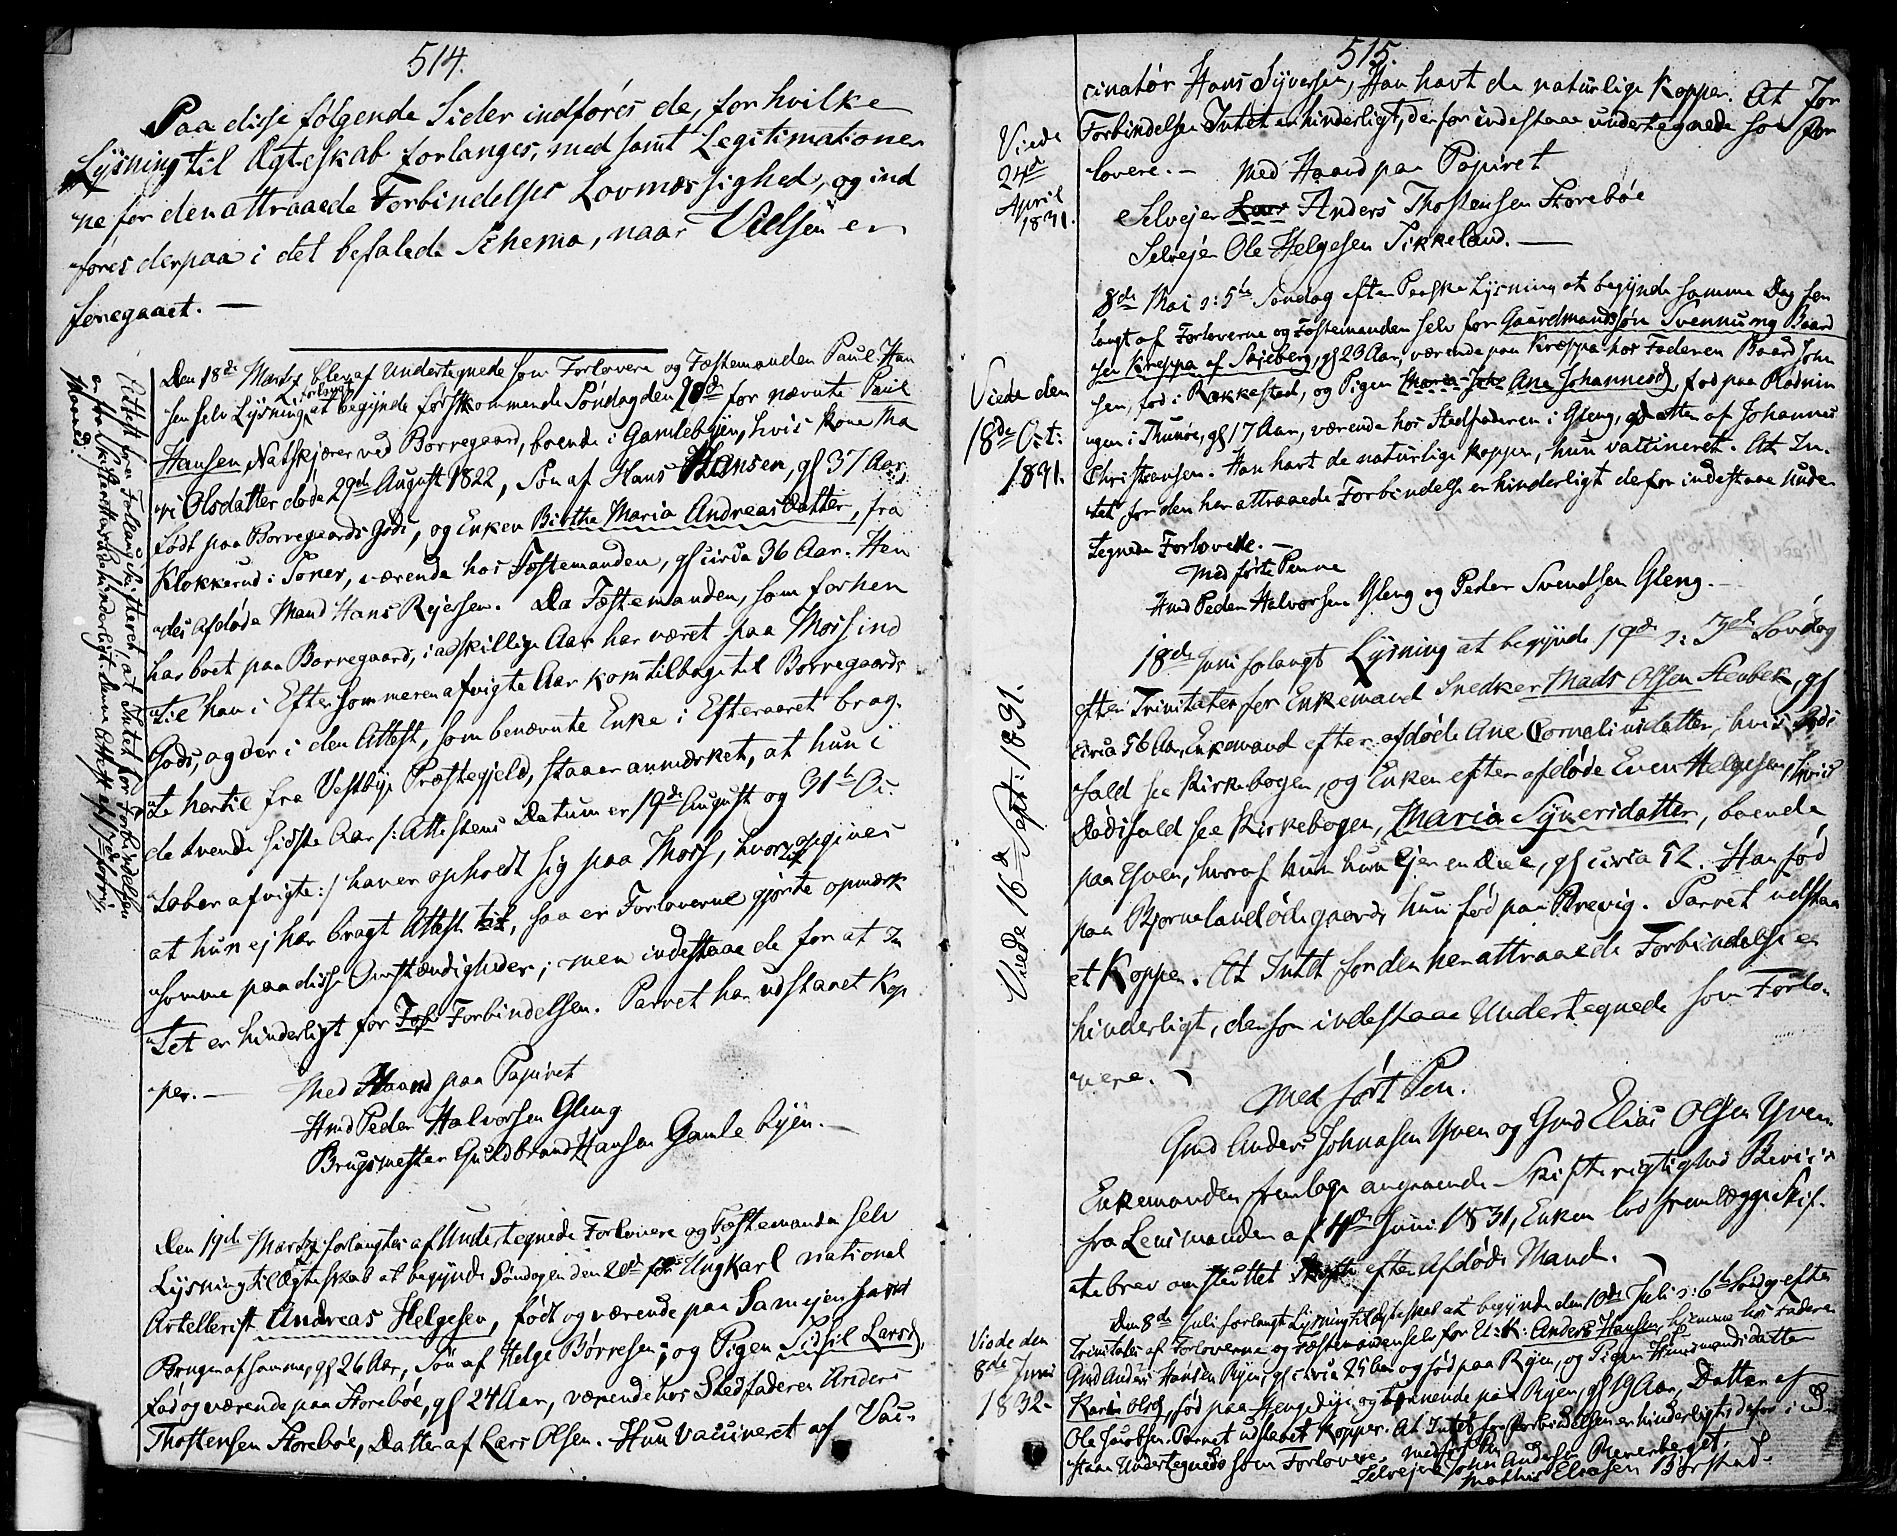 514.
Paa disse følgende Sider indføres de, for hvilke
Lysning til Ægteskab forlanges, med samt Legitimationer
ne for den attraaede Forbindelses Lovmæssighed, og ind
føres derpaa i det befalede Schema, naar Vielsen er
foregaaet. —
Den 18de Martz blev af Undertegnede som Forlovere og Fæstemanden Paul Han
sen selv Lysning forlangt at begynde førstkommende Søndag den 20de for nævnte Paul
Hansen Natskjærer ved Borregaard, boende i Gamlebyen, hvis Kone Ma
ri Olsdatter døde 29de August 1822, Søn af Hans Hansen, gl 37 Aar,
født paa Borregaards Gods, og Enken Birthe Maria Andreasdatter, fra
Klokkerud i Soner, værende hos Fæstemanden, gl circa 36 Aar. Hen
des afdøde Mand Hans Reiersen. Da Fæstemanden, som forhen
har boet paa Borregaard, i adskillige Aar har været paa Moss ind
til han i Eftersommeren afvigte Aar kom tilbage til Borregaards
Gods, og der i den Attest, som benævnte Enke i Efteraaret brag
te hertil fra Vestbye Præstegjeld, staaer anmærket, at hun i
de tvende sidste Aar /: Attestens Datum er 19de August og 31te Oc
tober afvigte :/ haver opholdt sig paa Moss, hvor opgives
at hun ej har bragt Attest til, saa er Forloverne gjorte opmærk
somme paa disse Omstændigheder; men indestaae de for at In
tet er hinderligt for Forbindelsen. Parret har udstaaet Kop
per. — Med Haand paa Papiret
Hmd Peder Halvorsen Gleng
Brugsmester Guldbrand Hansen Gamlebyen. —
Den 19de Martz forlangtes af Undertegnede Forlovere og Fæstemanden selv
Lysning til Ægteskab at begynde Søndagen den 20de for Ungkarl national
Artellerist Andreas Helgesen, født og værende paa
Bruger af samme, gl 26 Aar, Søn af Helge Børresen; og Pigen Sidsil Larsd,
fød og værende paa Storebøe, gl 24 Aar, værende hos Stedfaderen Anders
Thostensen Storebøe, Datter af Lars Olsen. Hun vaccineret af Vac-
515.
cinatør Hans Syversen, Han havt de naturlige Kopper. At for
Forbindelsen Intet er hinderligt, derfor indestaae undertegnede som for
lovere. — Med Haand paa Papiret
Selvejer Lars Anders Thostensen Storebøe
Selvejer Ole Helgesen Sikkeland. —
Viede
24de
April
1831.
8de Mai : 5te Søndag efter Paaske Lysning at begynde samme Dag for
langt af Forloverne og Fæstemanden selv for Gaardmandssøn Svennung Baard
sen Kreppa af Skieberg, gl 23 Aar, værende paa Kræppa hos Faderen Baard
sen, fød i Rakkestad, og Pigen Ane Johannesd, fød paa Rødnin
gen i Thunøe, gl 17 Aar, værende hos Stedfaderen i Gleng, Datter af Johannes
Christiansen. Han havt de naturlige Kopper, hun vaccineret. At In-
tet for den her attraaede Forbindelse er hinderligt derfor indestaae Under
tegnede Forlovere. —
Med førte Penne
Hmd Peder Halvorsen Gleng og Peder Svendsen Gleng. —
Viede den
18de Oct:
1831.
18de Juni forlangt Lysning at begynde 19de : 3de Søndag
efter Trinitates for Enkemand Snedker Mads Olsen Stenbek, gl
circa 56 Aar, Enkemand efter afdøde Ane Cornelius datter, hvis Døds
fald see Kirkebogen, og Enken efter afdøde Even Helgesen, hvis
Dødsfald see Kirkebogen, Maria Syversdatter, boende
paa Yven, hvoraf hun hun Ejer en Deel, gl circa 52. Han fød
paa Bjørnelandødegaard, hun fød paa Brevig. Parret udstaa
et Kopper. At Intet for den her attraaede Forbindelse er
hinderligt, derfor indestaae Undertegnede som Forlo-
vere. —
Med ført Pen.
Gmd Anders Johnasen Yven og Gmd Elias Olsen Yven
Viede 16de Sept: 1831.
Enkemanden fremlagt angaaende Skifterigtighed Beviis
fra Lensmanden af 4de Juni 1831, Enken lod fremlægge Skif-
tebrev om sluttet Skifte efter Afdøde Mand. —
Den 8de Juli forlangt Lysning til Ægteskab at begynde den 10de Juli : 6te Søndag efter
Trinitates af Forloverne og Fæstemanden selv for U: K: Anders Hansen, hjemme hos Faderen
Gmd Anders Hansen Ryen, gl circa 25 Aar og fød paa Ryen, og Pigen Huusmandsdatter
Karen Olsd, fød paa og tjenende paa Ryen, gl 19 Aar, Datter af
Ole Jacobsen. Parret udstaaet Kopper. At Intet for Forbindelsen er hinderligt derfor i
staae Undertegnede som Forlovere. Med ført Pen
Selvejer John Andersen Reverberget.
Mathis Eliasen Børstad.
Viede den
8de Juni
1832.
Attest fra
er for Skifterettens hinderligt. Denne Attest af 17de
Maanad.